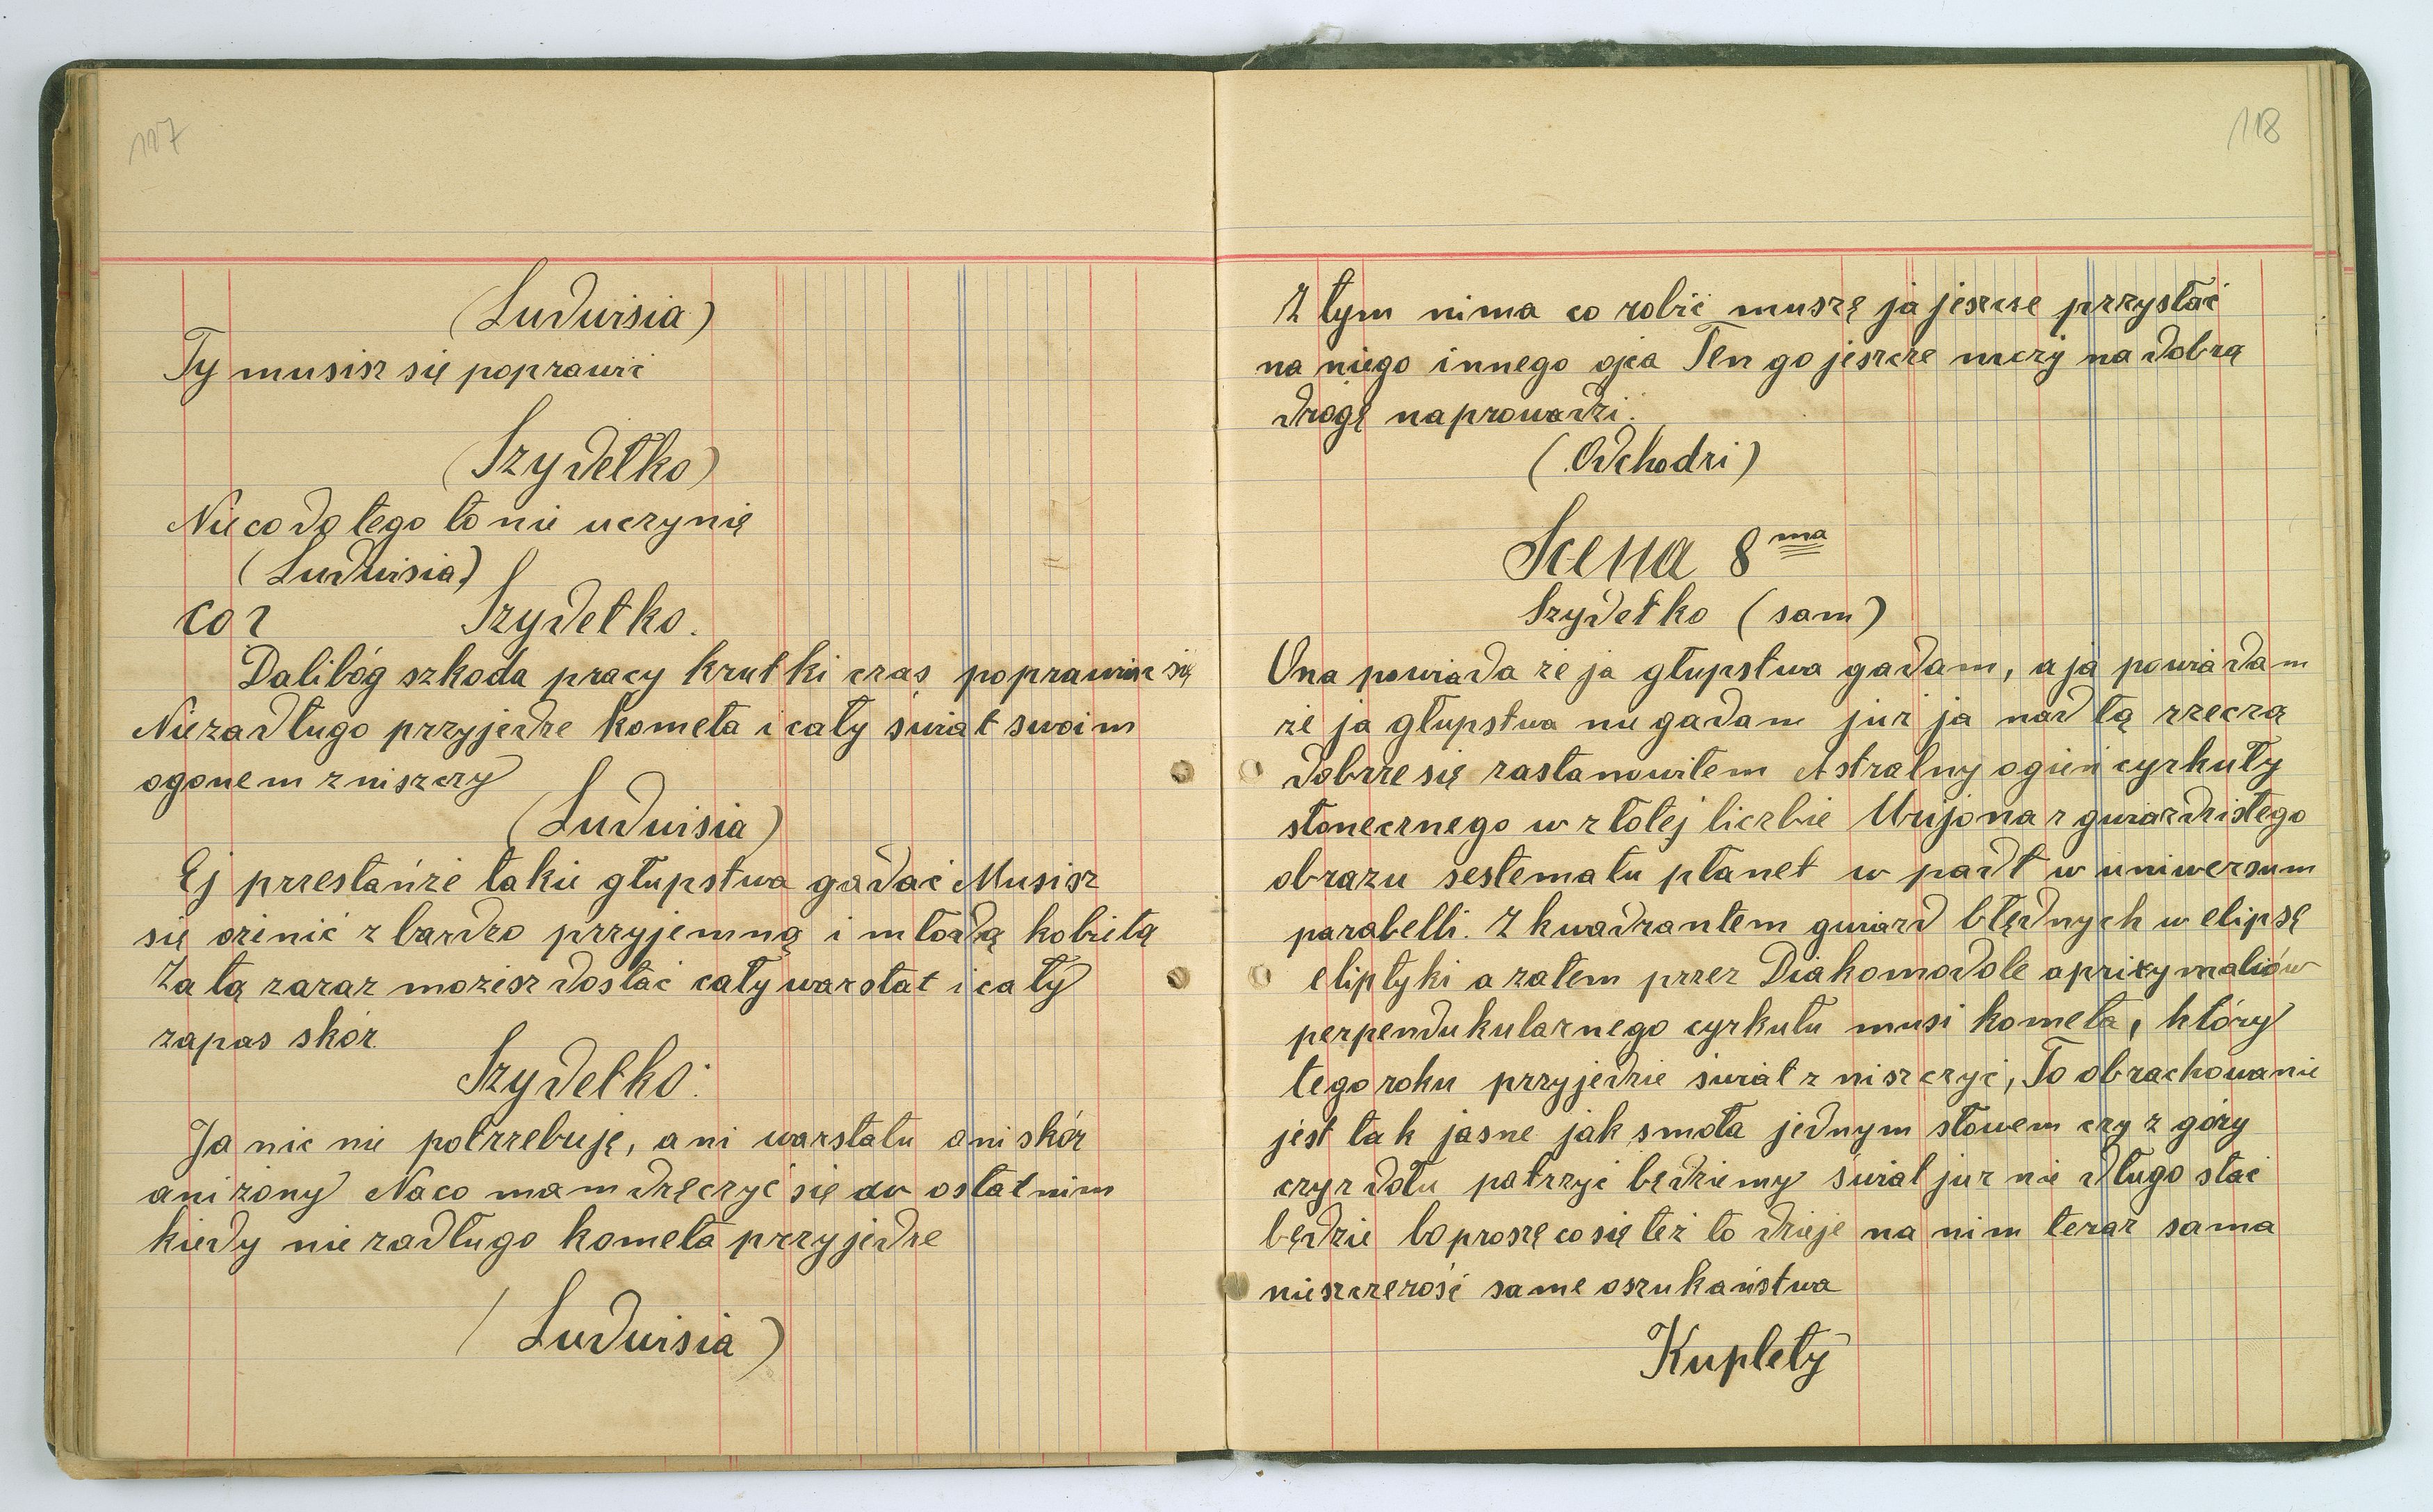 117
(Ludwisia)
Ty musisz się poprawić
(Szydełko)
Nie co do tego to nie uczynię
(Ludwisia)
coż Szydełko.
Dalibóg szkoda pracy krutki czas poprawiać się
Niezadługo przyjedze kometa i cały świat swoim
ogonem zniszczy
(Ludwisia)
Ej przestańże takie głupstwa gadać Musisz
się ożenić z bardzo przyjemną i młodą kobitą
Za tą zaraz możesz dostać cały warstat i cały
zapas skór
Szydełko.
Ja nic nie potrzebuję, ani warstatu ani skór
ani żony Naco mam dręczyć się w ostatnim
kiedy nie zadługo kometa przyjedze
(Ludwisia)
118
Z tym nima co robić muszę ja jeszcze przystać
na niego innego ojca Ten go jeszcze na dobrą
drogę naprowadzi.
(Odchodzi)
Scena 8ma
Szydełko (sam)
Ona powiada że ja głupstwa gadam, a ja powiadam
że ja głupstwa nie gadam już ja nad tą rzeczą
dobrze się zastanowiłem Astralny ogień cyrkuły
słonecznego w złotej liczbie Urijona z gwiaździstego
obrazu sestematu płanet w padł w uniwersum
parabelli. Z kwadrantem gwiazd błędnych w elipsę
eliptyki a zatem przez Diakomodole
perpendukularnego cyrkułu musi kometa, który
tego roku przyjedzie świat zniszczyć, To obrachowanie
jest tak jasne jak smoła jednym słowem czy z góry
czy z dołu patrzyć będziemy świat już nie długo stać
będzie bo proszę co się też to dzieje na nim teraz sama
nieszczerość same oszukaństwa
Kuplety